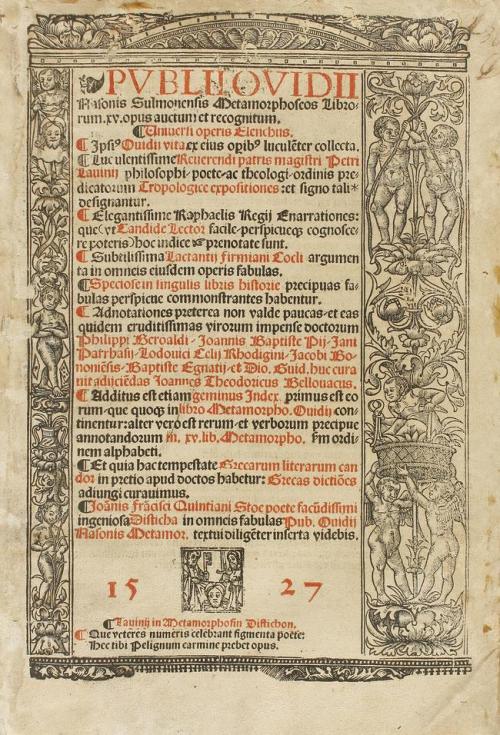 PVBLII OVIDII
Nasonis Sulmonensis Metamorphoseos Libro-
rum.xv.opus auctum et recognitum.
¶ Uniuersi operis Elenchus.
¶ Ipsiꝰ Ouidij vita ex eius opibꝰ luculēter collecta.
¶ Luculentissime Reuerendi patris magistri Petri
Lauinij philosophi-poete-ac theologi-ordinis pre-
dicatorum Tropologice expositiones: et signo tali *
designantur.
¶ Elegantissime Raphaelis Regij Enarrationes:
que (vt Candide Lector facile-perspicueq; cognosce-
re poteris) hoc indice ☞ prenotate sunt.
¶ Subtilissima Lactantij Firmiani Coeli argumen
ta in omneis eiusdem operis fabulas.
¶ Speciose in singulis libris historie precipuas fa-
bulas perspicue commonstrantes habentur.
¶ Adnotationes preterea non valde paucas-et eas
quidem eruditissimas virorum impense doctorum
Philippi Beroaldi-Joannis Baptiste Pij-Jani
Parrhasij-Lodouici Celij Rhodigini-Jacobi Bo-
noniēsis-Baptiste Egnatij-et Dio. Guid. huc cura
uit adijciēdas Joannes Theodoricus Bellouacus.
¶ Additus est etiam geminus Index. primus est eo
rum-que quoq; in libro Metamorpho. Ouidij con-
tinentur: alter vero est rerum-et verborum precipue
annotandorum in. xv. lib. Metamorpho. ꝑm ordi-
nem alphabeti.
¶ Et quia hac tempestate Grecarum literarum can
dor in pretio apud doctos habetur: Grecas dictiōes
adiungi curauimus.
¶ Joānis Frācisci Quintiani Stoe poete facūdissimi
ingeniosa Disticha in omneis fabulas Pub. Ouidij
Nasonis Metamor. textui diligēter inserta videbis.
15 27
¶ Lauinij in Metamorphosin Distichon.
¶ Que veterēs numeris celebrant figmenta poete:
Hec tibi Pelignum carmine prebet opus.